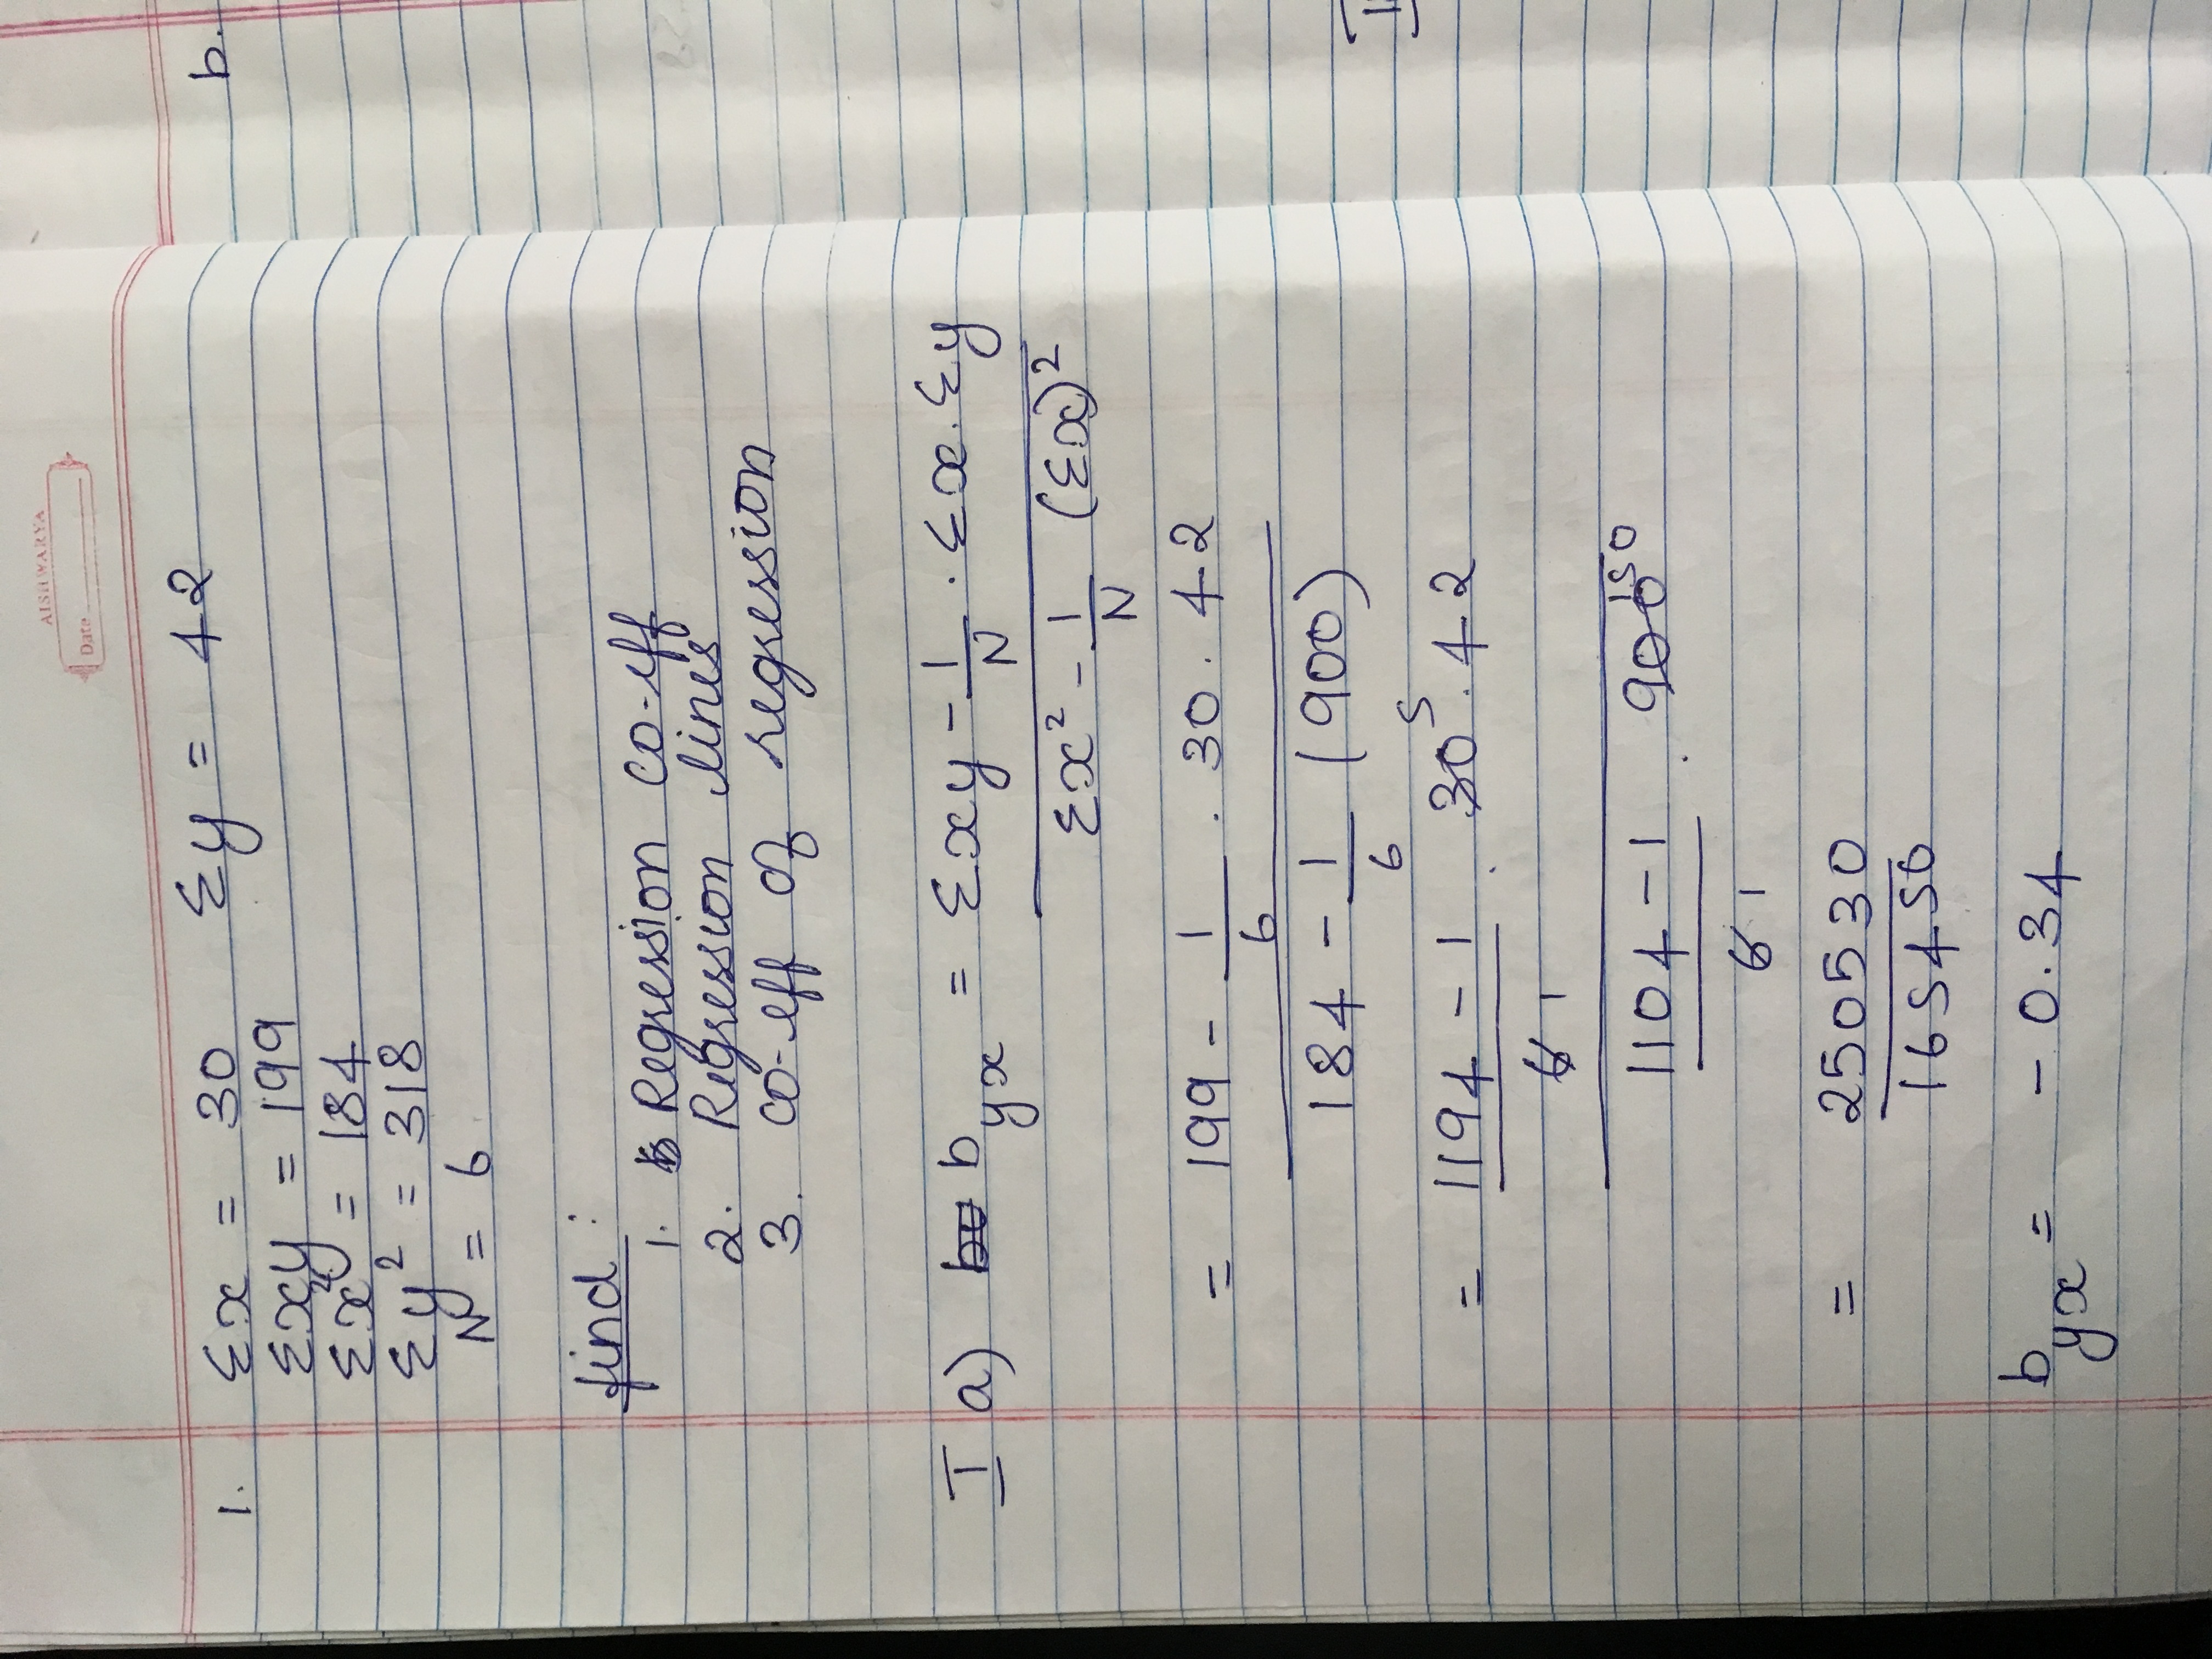 AISHWARYA
Date
1. Σx = 30 Σy = 42
Σxy = 199
Σx² = 184
Σy² = 318
N = 6
find :
1. Regression co-eff
2. Regression lines
3. co-eff of regression
I a) b yx = Σxy - 1/N . Σx. Σy
Σx² - 1/N (Σx)²
= 199 - 1/6 . 30. 42
184 - 1/6 (900)
= 1194 - 1 . 30 5 . 42
6 1
1104 - 1 . 900 150
6 1
= 250530
165450
b yx = - 0.34
b.